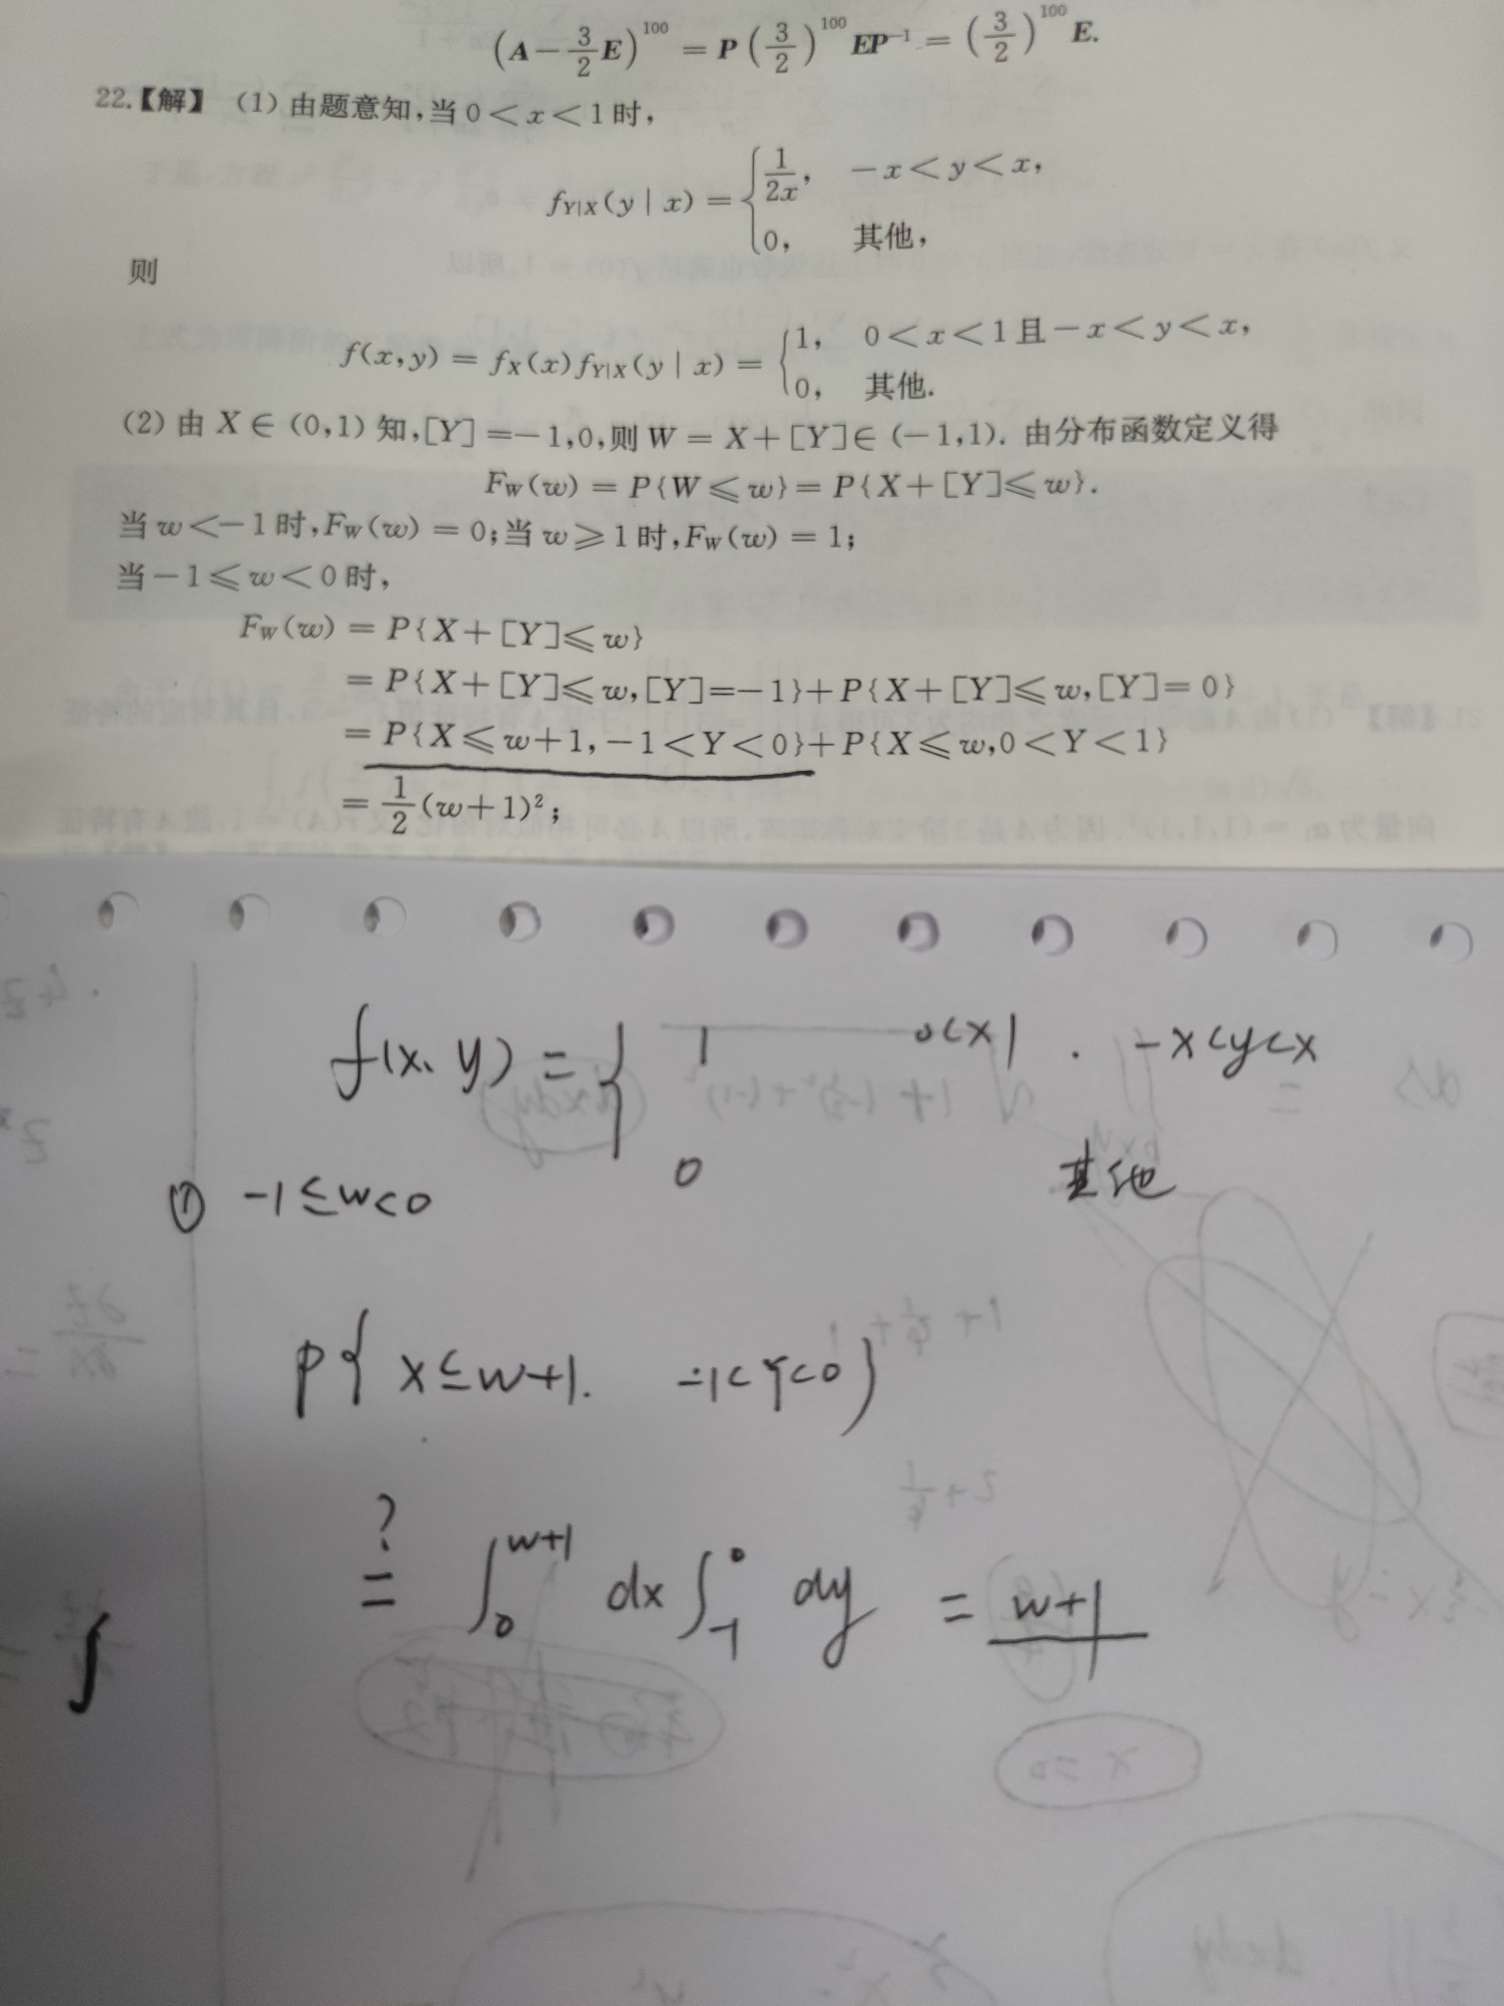 (A－3/2 E)^100 ＝ P(3/2)^100 EP^-1 ＝ (3/2)^100 E.
22.【解】 (1) 由题意知,当 0＜x＜1 时,
f_{Y|X}(y | x) ＝ { 1/2x, －x＜y＜x,
0, 其他,
则
f(x,y) ＝ f_X(x)f_{Y|X}(y | x) ＝ { 1, 0＜x＜1 且 －x＜y＜x,
0, 其他.
(2) 由 X ∈ (0,1) 知,[Y] ＝－1,0,则 W ＝ X＋[Y]∈ (－1,1). 由分布函数定义得
F_W(w) ＝ P{W ≤ w} ＝ P{X＋[Y]≤ w}.
当 w＜－1 时,F_W(w) ＝ 0;当 w ≥ 1 时,F_W(w) ＝ 1;
当－1≤ w＜0 时,
F_W(w) ＝ P{X＋[Y]≤ w}
＝ P{X＋[Y]≤ w,[Y]＝－1}＋P{X＋[Y]≤ w,[Y]＝ 0}
＝ P{X ≤ w＋1,－1＜Y＜0}＋P{X ≤ w,0＜Y＜1}
＝ 1/2 (w＋1)²;
f(x、y) = { 1 0<x1 . -x<y<x
0 其他
① -1≤w<0
P{ x≤w+1. -1<Y<0 }
?= ∫_0^{w+1} dx ∫_{-1}^0 dy = w+1
∫